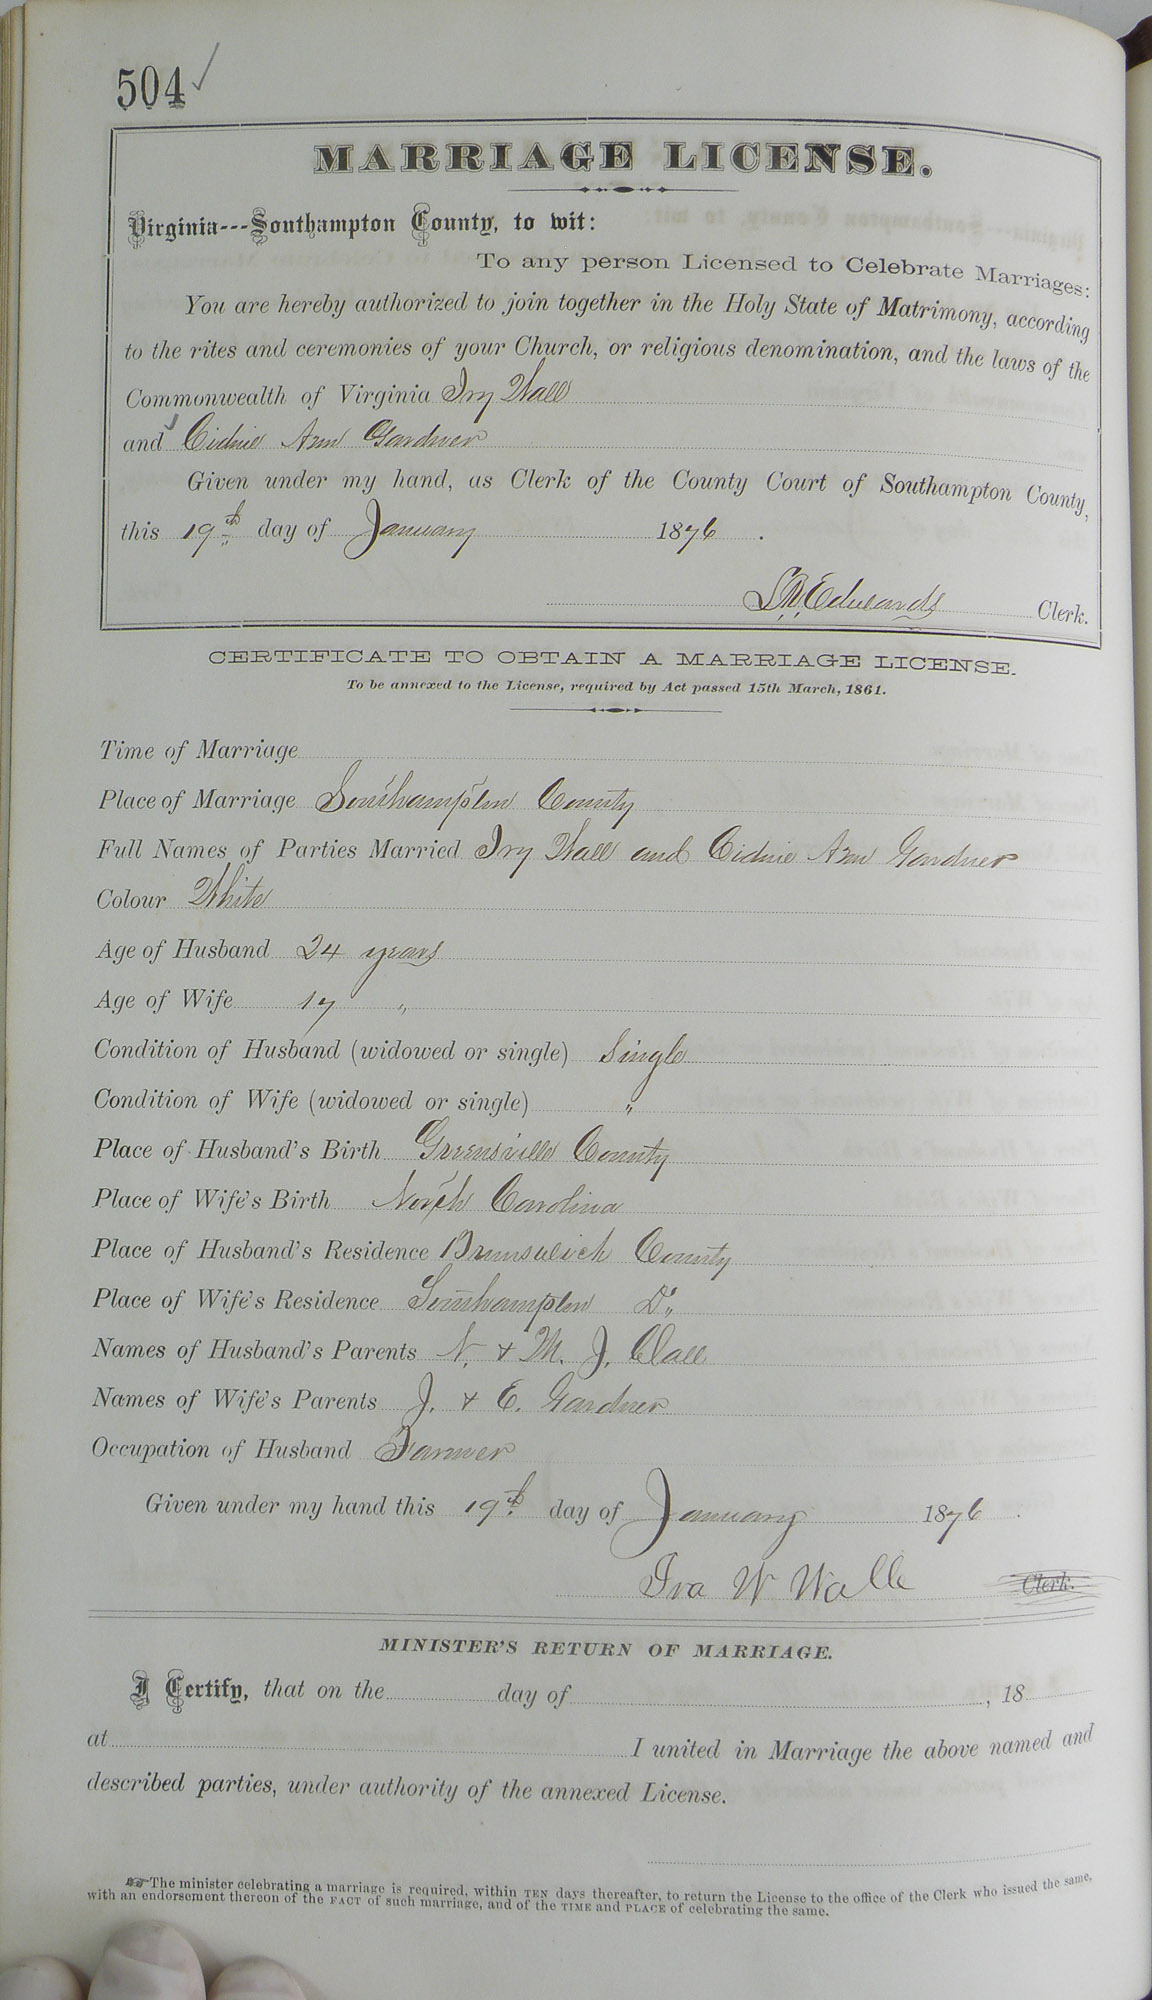 504
MARRIAGE LICENSE.
Virginia---Southampton County, to wit:
To any person Licensed to Celebrate Marriages:
You are hereby authorized to join together in the Holy State of Matrimony, according
to the rites and ceremonies of your Church, or religious denomination, and the laws of the
Commonwealth of Virginia Iry Wall
and Cidnie Ann Gardner
Given under my hand, as Clerk of the County Court of Southampton County,
this 19th day of January 1876.
L.R. Edwards Clerk.
CERTIFICATE TO OBTAIN A MARRIAGE LICENSE.
To be annexed to the License, required by Act passed 15th March, 1861.
Time of Marriage
Place of Marriage Southampton County
Full Names of Parties Married Iry Wall and Cidnie Ann Gardner
Colour White
Age of Husband 24 years
Age of Wife 17 "
Condition of Husband (widowed or single) Single
Condition of Wife (widowed or single) "
Place of Husband's Birth Greensville County
Place of Wife's Birth North Carolina
Place of Husband's Residence Brunswick County
Place of Wife's Residence Southampton Do
Names of Husband's Parents N. & M. J. Wall
Names of Wife's Parents J. & E. Gardner
Occupation of Husband Farmer
Given under my hand this 19th day of January 1876.
Ira W Walle Clerk.
MINISTER'S RETURN OF MARRIAGE.
I Certify, that on the day of , 18
at I united in Marriage the above named and
described parties, under authority of the annexed License.
☞The minister celebrating a marriage is required, within TEN days thereafter, to return the License to the office of the Clerk who issued the same,
with an endorsement thereon of the FACT of such marriage, and of the TIME and PLACE of celebrating the same.